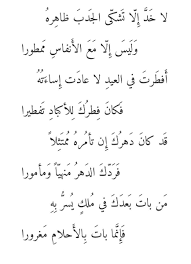 لا خَدَّ إِلّا تَشَكّى الجَدبَ ظاهِرهُ
وَلَيسَ إِلّا مَعَ الأَنفاسِ مَمطورا
أَفطَرتَ في العيدِ لا عادَت إِساءَتُهُ
فَكانَ فِطرُكَ لِلأَكبادِ تَفطيرا
قَد كانَ دَهرُكَ إِن تَأمُرهُ مُمتَثِلاً
فَرَدَّكَ الدَهرُ مَنهِيّاً وَمأمورا
مَن باتَ بَعدَكَ في مُلكٍ يُسَرُّ بِهِ
فَإِنَّما باتَ بِالأَحلامِ مَغرورا